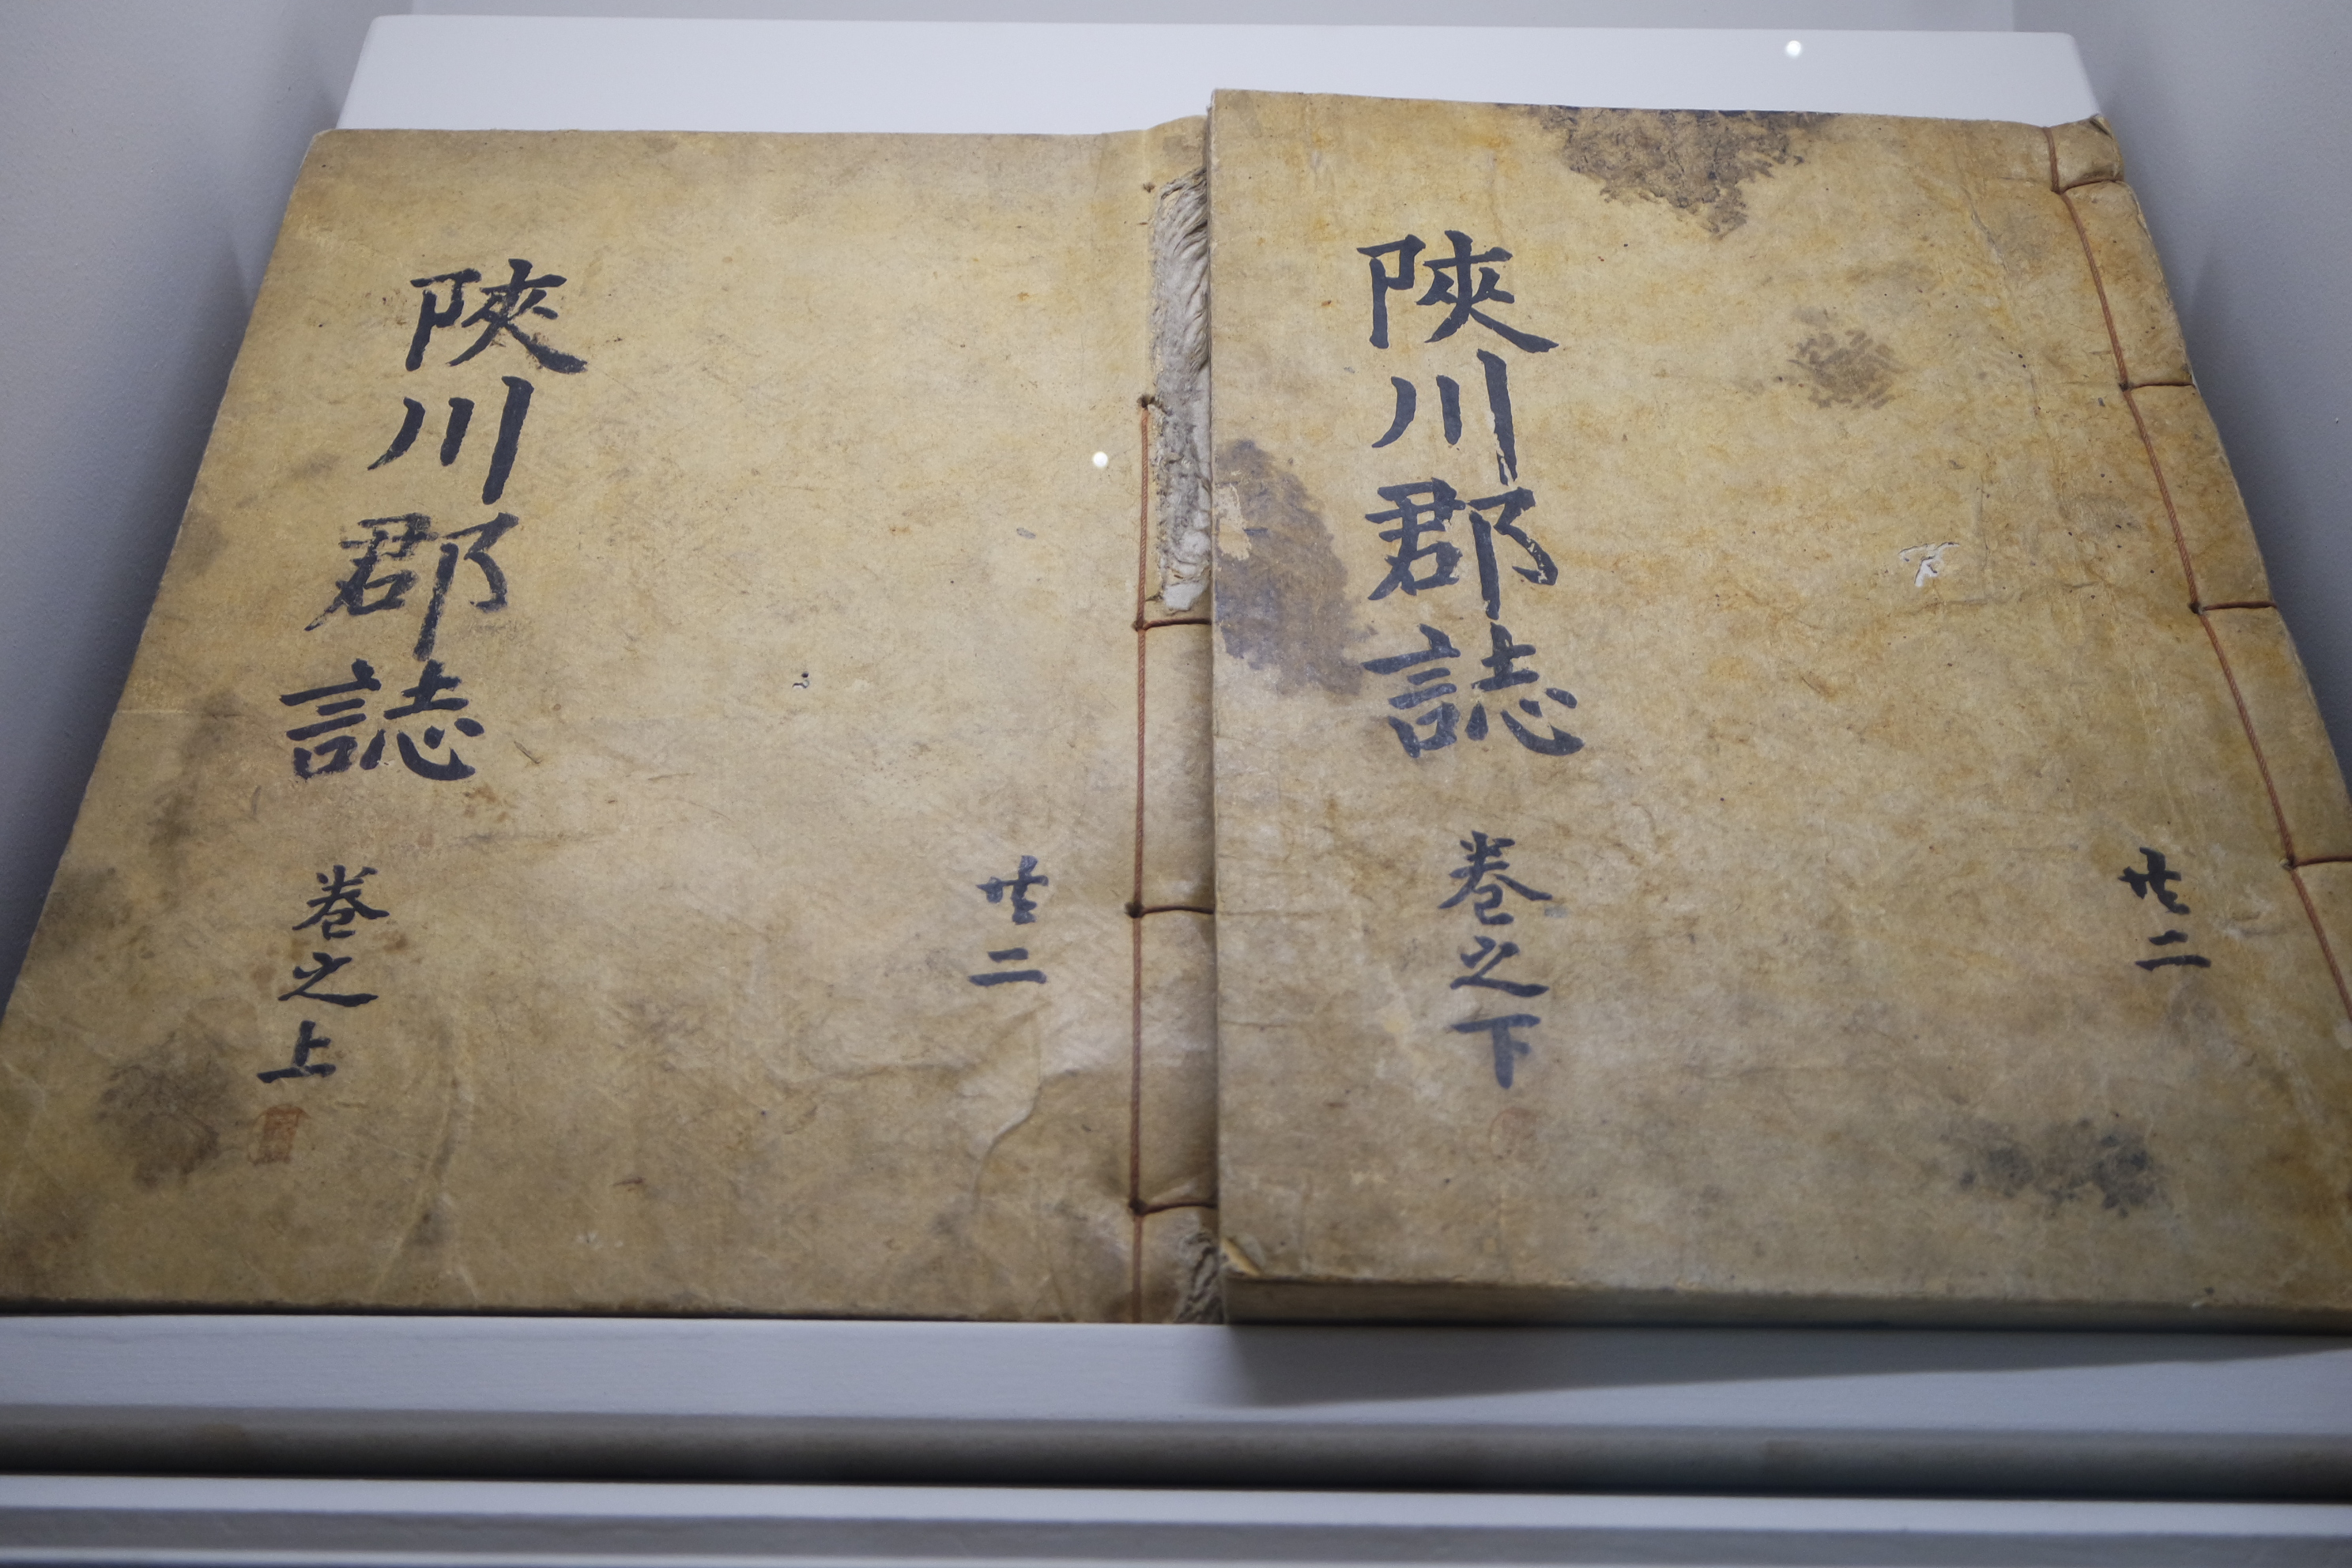 陜川郡誌 卷之上
共二
陜川郡誌 卷之下
共二